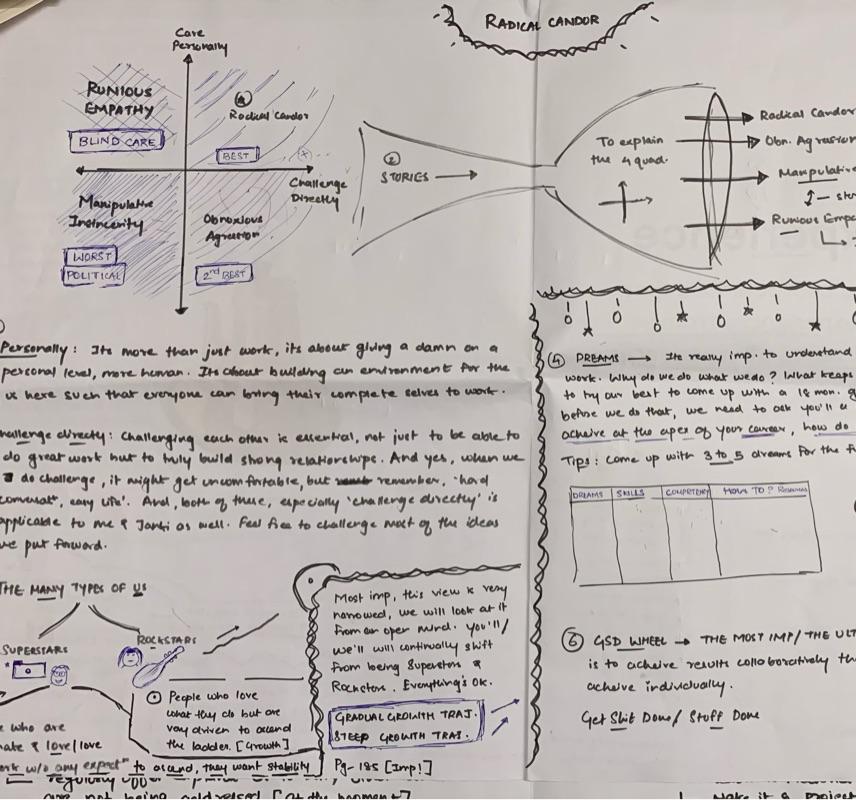 RADICAL CANDOR
Care
Personally
RUNIOUS
EMPATHY
BLIND CARE
Radical Candor
BEST
Challenge
Directly
Manipulative
Insincerity
WORST
POLITICAL
Obnoxious
Agression
2nd BEST
2
STORIES →
To explain
the 4 quad.
Radical Candor
Obn. Agression
Manipulative
Runious Empa
Personally: Its more than just work, its about giving a damn on a
personal level, more human. Its about building an environment for the
us here such that everyone can bring their complete selves to work.
hallenge directly: Challenging each other is essential, not just to be able to
do great work but to truly build strong relationships. And yes, when we
do challenge, it might get uncomfortable, but remember, 'hard
conversat", easy life'. And, both of these, especially 'challenge directly' is
applicable to me & Janki as well. Feel free to challenge most of the ideas
we put forward.
THE MANY TYPES OF US
SUPERSTARS
ROCKSTARS
People who love
what they do but are
very driven to ascend
the ladder. [Growth]
who are
love/love
w/o any expect" to ascend, they want stability
Most imp, this view is very
narrowed, we will look at it
from an open mind. you'll/
we'll will continually shift
from being Superstars &
Rockstars. Everything's OK.
GRADUAL GROWTH TRAJ.
STEEP GROWTH TRAJ.
Pg-185 [Imp!]
4 DREAMS → Its really imp. to understand
work. Why do we do what we do? What keeps
to try our best to come up with a 18 mon. g
before we do that, we need to ask you'll a
acheive at the apex of your career, how do
Tips: Come up with 3 to 5 dreams for the f
DREAMS SKILLS COMPETENCY HOW TO?
GSD WHEEL → THE MOST IMP/ THE ULT
is to acheive results collaboratively th
acheive individually.
Get Shit Done/ Stuff Done
regularly
are not being addressed [at the moment]
Make it a project